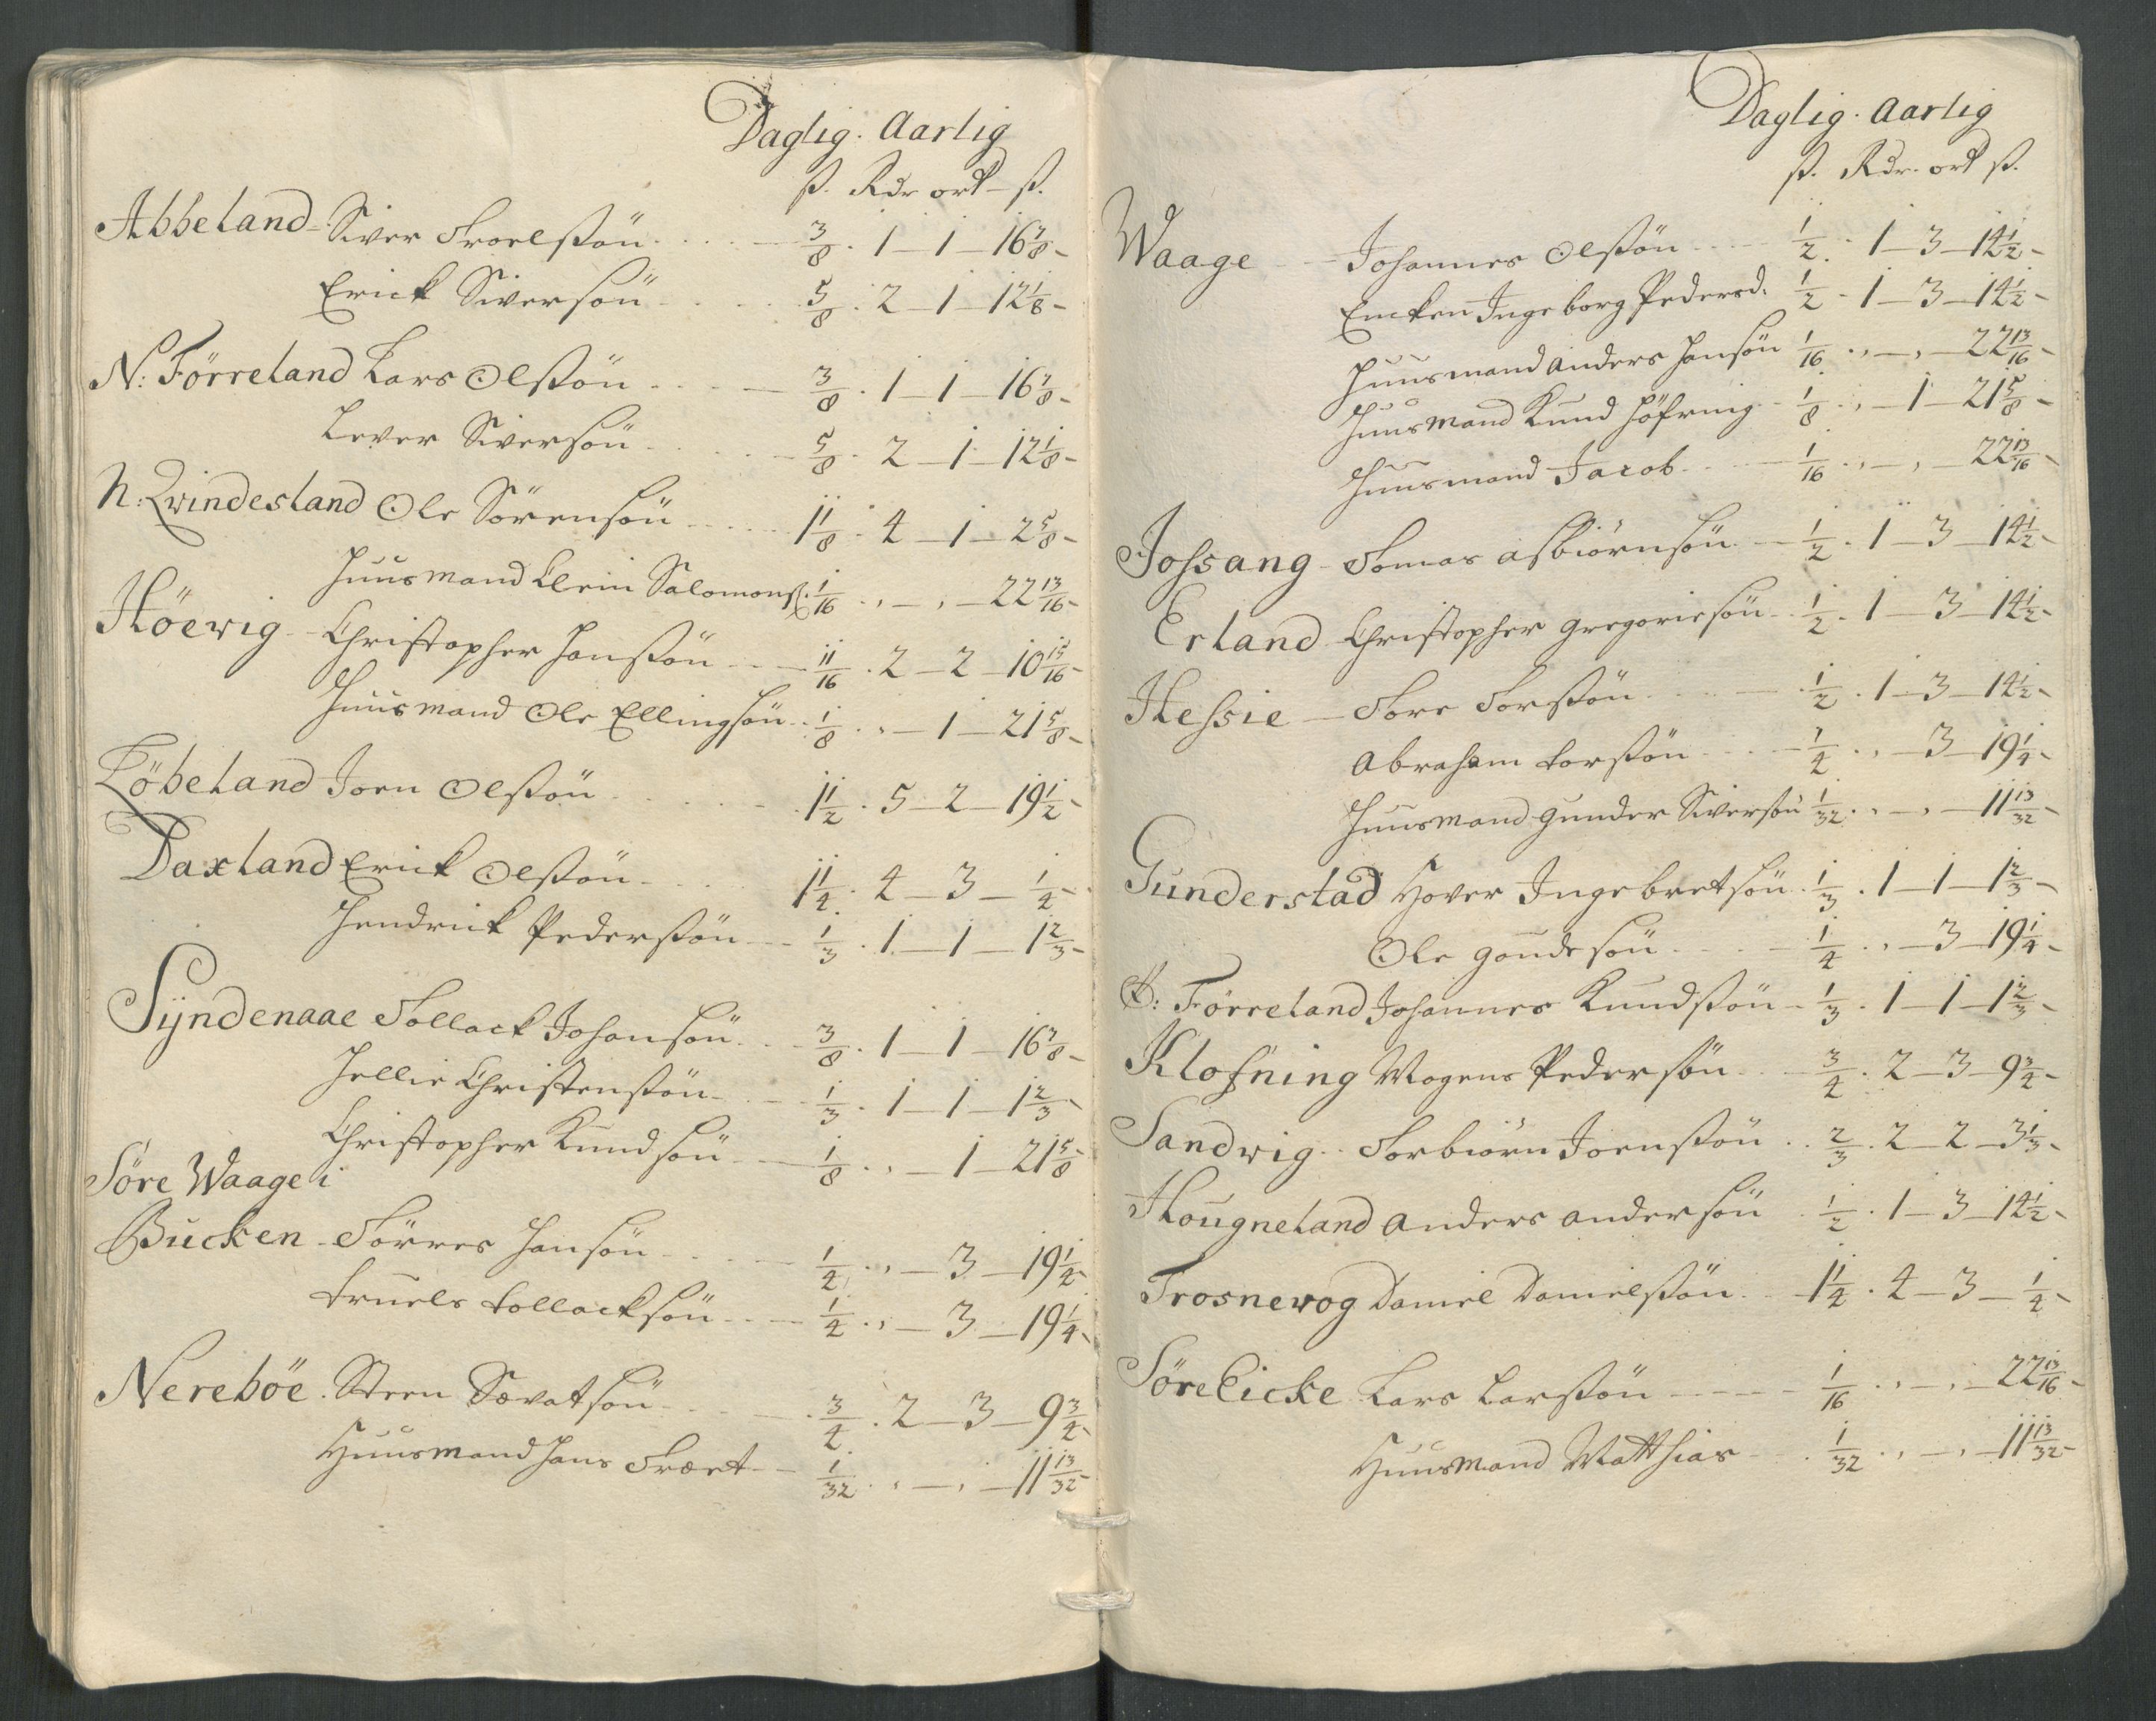 Daglig. Aarlig
ß. Rdr ort - ß.
Abbeland - Siver Troelsßön . . . . 3/8 . 1 - 1 - 16 7/8 -
Erick Siversön . . . . 5/8 . 2 - 1 - 12 1/8 -
N: Förreland Lars Olsßön . . . 3/8 . 1 - 1 - 16 7/8 -
Lever Siversön . . . . 5/8 . 2 - 1 - 12 1/8 -
N: Qvindesland Ole Sörensön . . . . 1 1/8 . 4 - 1 - 2 5/8 -
Huusmand Clein Salomonss: 1/16 . , - , - 22 13/16 -
Höevig - Christopher Hansßön . . - 11/16 . 2 - 2 - 10 15/16 -
Huusmand Ole Ellingsön . . 1/8 . , - 1 - 21 5/8 -
Löbeland Joen Olsßön . . . . . 1 1/2 . 5 - 2 - 19 1/2 -
Daxland Erick Olsßön . . . . 1 1/4 . 4 - 3 - 1/4 -
Hendrick Pedersßön . . - 1/3 . 1 - 1 - 1 2/3 -
Sÿndenaae Tollack Johansön . . . 3/8 . 1 - 1 - 16 7/8 -
Hellie Christensßön . . - 1/3 . 1 - 1 - 1 2/3 -
Christopher Knudsön . - 1/8 . , - 1 - 21 5/8
Söre Waage i
Bucken - Törres Hansön . . . . 1/4 . , - 3 - 19 1/4 -
Truels Tollacksön . . - 1/4 . , - 3 - 19 1/4 -
Nereböe . Steen Sævatsön . . . . 3/4 . 2 - 3 - 9 3/4 -
Huusmand Hans - 1/32 . , - , - 11 13/32 -
Daglig. Aarlig
ß. Rdr. ort ß.
Waage - - Johannes Olsßön . . . . 1/2 . 1 - 3 - 14 1/2 -
Encken Ingeborg Pedersd: 1/2 - 1 - 3 - 14 1/2 -
Huusmand Anders Hansön 1/16 . , - , - 22 13/16 -
Huusmand Knud Höfring - 1/8 . , - 1 - 21 5/8 -
Huusmand Jacob . . . - 1/16 . , - , - 22 13/16 -
Johsang - Tomas Asbiörnsön . - 1/2 . 1 - 3 - 14 1/2 -
Erland Christopher Gregoriesön . . 1/2 . 1 - 3 - 14 1/2 -
Hessie - Tore Torsßön . . . . - 1/2 . 1 - 3 - 14 1/2 -
Abraham Torsßön . . . - 1/4 . , - 3 - 19 1/4 -
Huusmand Gunder Siversön 1/32 . , - , - 11 13/32 -
Gunderstad Hover Ingebretsön . 1/3 . 1 - 1 - 1 2/3 -
Ole Goudesön . . . . - 1/4 . , - 3 - 19 1/4 -
Förreland Johannes Knudsßön - 1/3 . 1 - 1 - 1 2/3 -
Klofning Mogens Pedersön . . . 3/4 . 2 - 3 - 9 3/4 -
Sandvig . . Torbiörn Joensßön . . 2/3 . 2 - 2 - 3 1/3 -
Hougneland Anders Andersön . 1/2 . 1 - 3 - 14 1/2 -
Trosnevog Daniel Danielsßön . . - 1 1/4 . 4 - 3 - 1/4 -
Söre Eicke Lars Larsßön - - - - - 1/16 . , - , - 22 13/16 -
Huusmand Matthias . . . 1/32 . , - , - 11 13/32 -